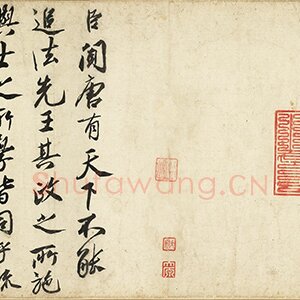 臣闻唐有天下不能
追法先王其政之所施
與士之所學皆因乎流
Shufawang.CN